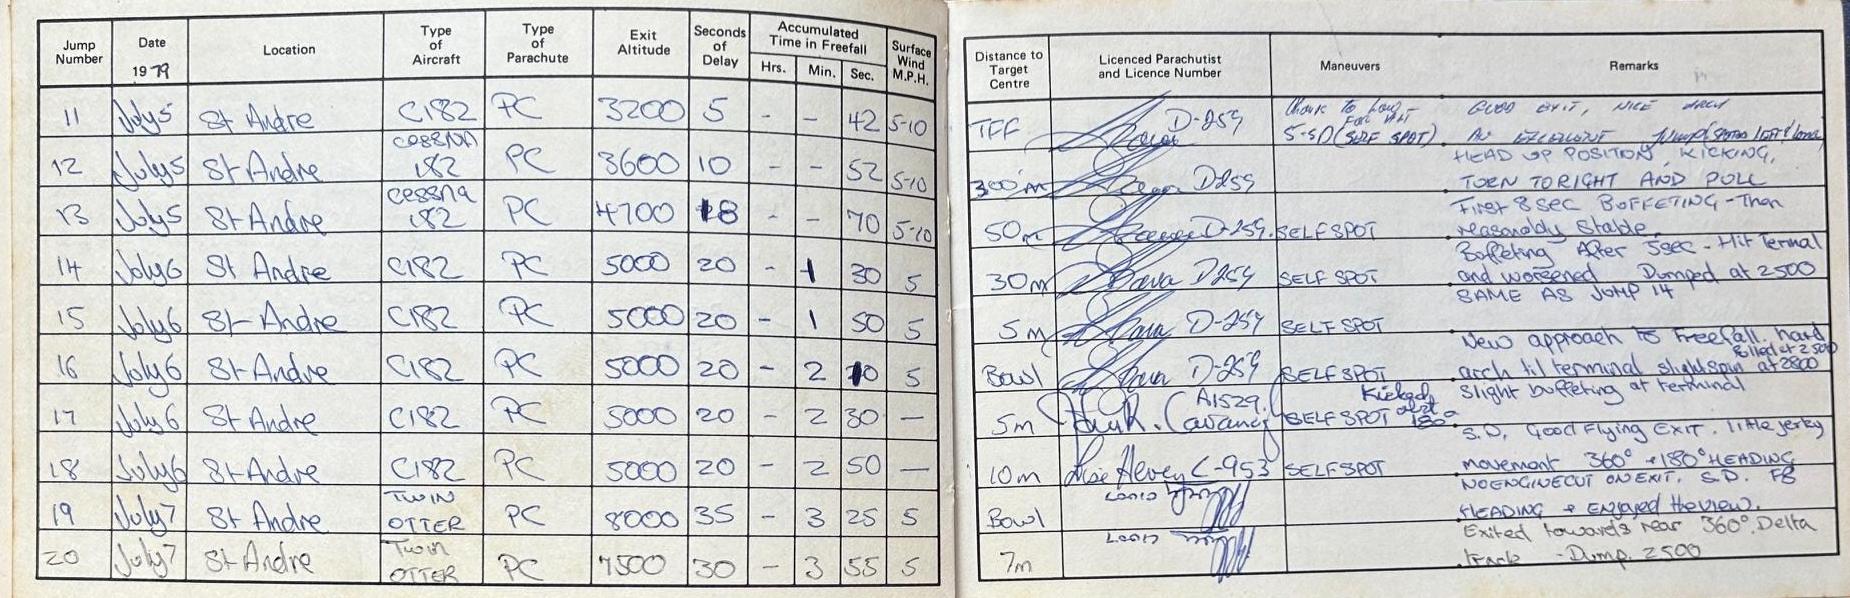 Jump Number Date 1979 Location Type of Aircraft Type of Parachute Exit Altitude Seconds of Delay Accumulated Time in Freefall Hrs. Min. Sec. Surface Wind M.P.H. Distance to Target Centre Licenced Parachutist and Licence Number Maneuvers Remarks
11 July 5 St Andre C182 PC 3200 5 - - 42 5-10 TFF D-259 5-SD (SELF SPOT) GOOD EXIT, NICE ARCH
12 July 5 St Andre CESSNA 182 PC 3600 10 - - 52 5-10 300 m D259 HEAD UP POSITION, KICKING, TURN TO RIGHT AND PULL
13 July 5 St Andre Cessna 182 PC 4700 18 - - 70 5-10 50m D-259. SELF SPOT First 8 sec BUFFETING - Then reasonably Stable.
14 July 6 St Andre C182 PC 5000 20 - 1 30 5 30m D259 SELF SPOT Buffeting After 5sec - Hit Termal and worsened Dumped at 2500
15 July 6 St Andre C182 PC 5000 20 - 1 50 5 5m D-259 SELF SPOT SAME AS JUMP 14
16 July 6 St Andre C182 PC 5000 20 - 2 10 5 Bowl D-259 SELF SPOT New approach to Freefall. hard arch til terminal slight spin at 2800 Pulled at 2500
17 July 6 St Andre C182 PC 5000 20 - 2 30 — 5m A1529 SELF SPOT Kicked 180° Slight buffeting at terminal
18 July 6 St Andre C182 PC 5000 20 - 2 50 — 10m C-953 SELF SPOT S.D. Good Flying EXIT. little jerky movement 360° + 180° HEADING
19 July 7 St Andre TWIN OTTER PC 8000 35 - 3 25 5 Bowl NO ENGINE CUT ON EXIT. S.D. FB HEADING + Enjoyed the view.
20 July 7 St Andre Twin OTTER PC 7500 30 - 3 55 5 7m Exited towards rear 360°. Delta track - Dump 2500